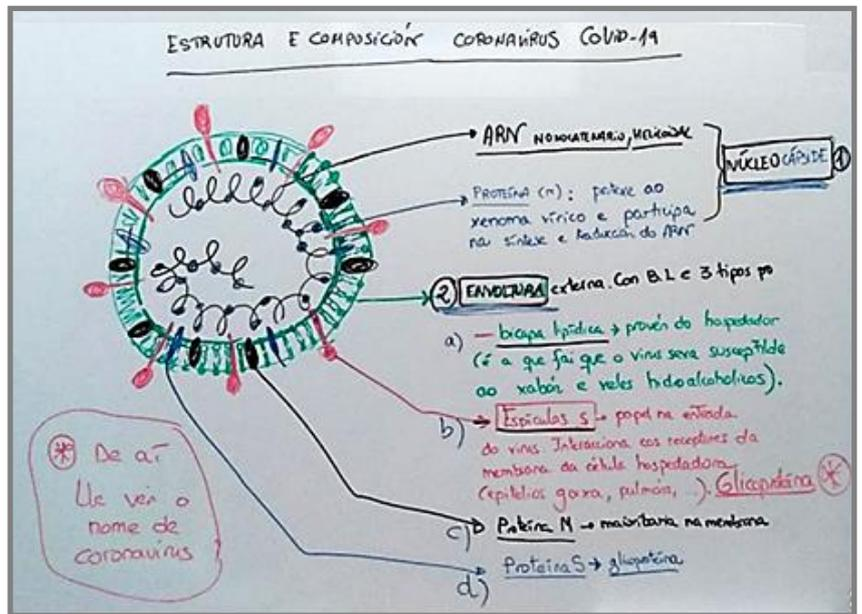 ESTRUTURA E COMPOSICIÓN CORONAVIRUS COVID-19
ARN MONOCATENARIO, HELICOIDAL
NÚCLEOCÁPSIDE 1
PROTEÍNA (N): protexe ao
xenoma vírico e participa
na síntese e traducción do ARN
2 ENVOLTURA externa. Con B.L e 3 tipos po
a) — bicapa lipídica → provén do hospedador
(é a que fai que o virus sexa susceptible
ao xabón e xeles hidoalcoholicos).
b) Espículas S → papel na entrada
do virus. Interacciona cos receptores da
membrana da célula hospedadora
(epitelios gorxa, pulmón, ...). Glicoproteína *
c) Proteína M → maioritaria na membrana
d) Proteína S → glicoproteína
* De aí
lle ven o
nome de
coronavirus